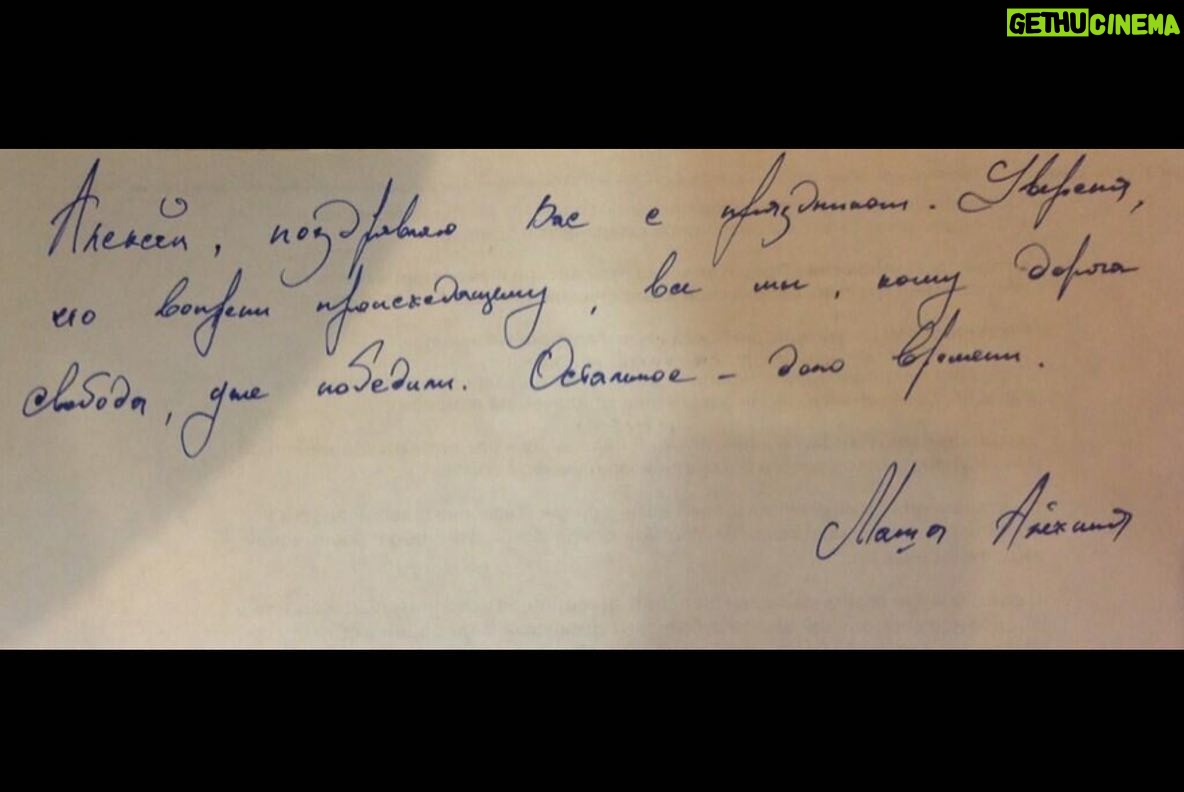 GETHUCINEMA
Алексей, поздравляю Вас с праздником. Уверена,
что вопреки происходящему, все мы, кому дорога
свобода, уже победили. Остальное – дело времени.
Маша Алёхина